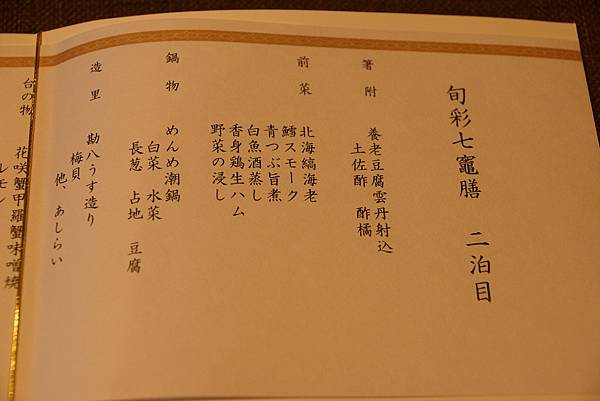 旬彩七竈膳　二泊目
箸附　養老豆腐雲丹射込
土佐酢　酢橘
前菜　北海縞海老
鱈スモーク
青つぶ旨煮
白魚酒蒸し
香身鶏生ハム
野菜の浸し
鍋物　めんめ潮鍋
白菜　水菜
長葱　占地　豆腐
造里　勘八うす造り
梅貝
他、あしらい
台の物　花咲蟹甲羅蟹味噌焼
レモン